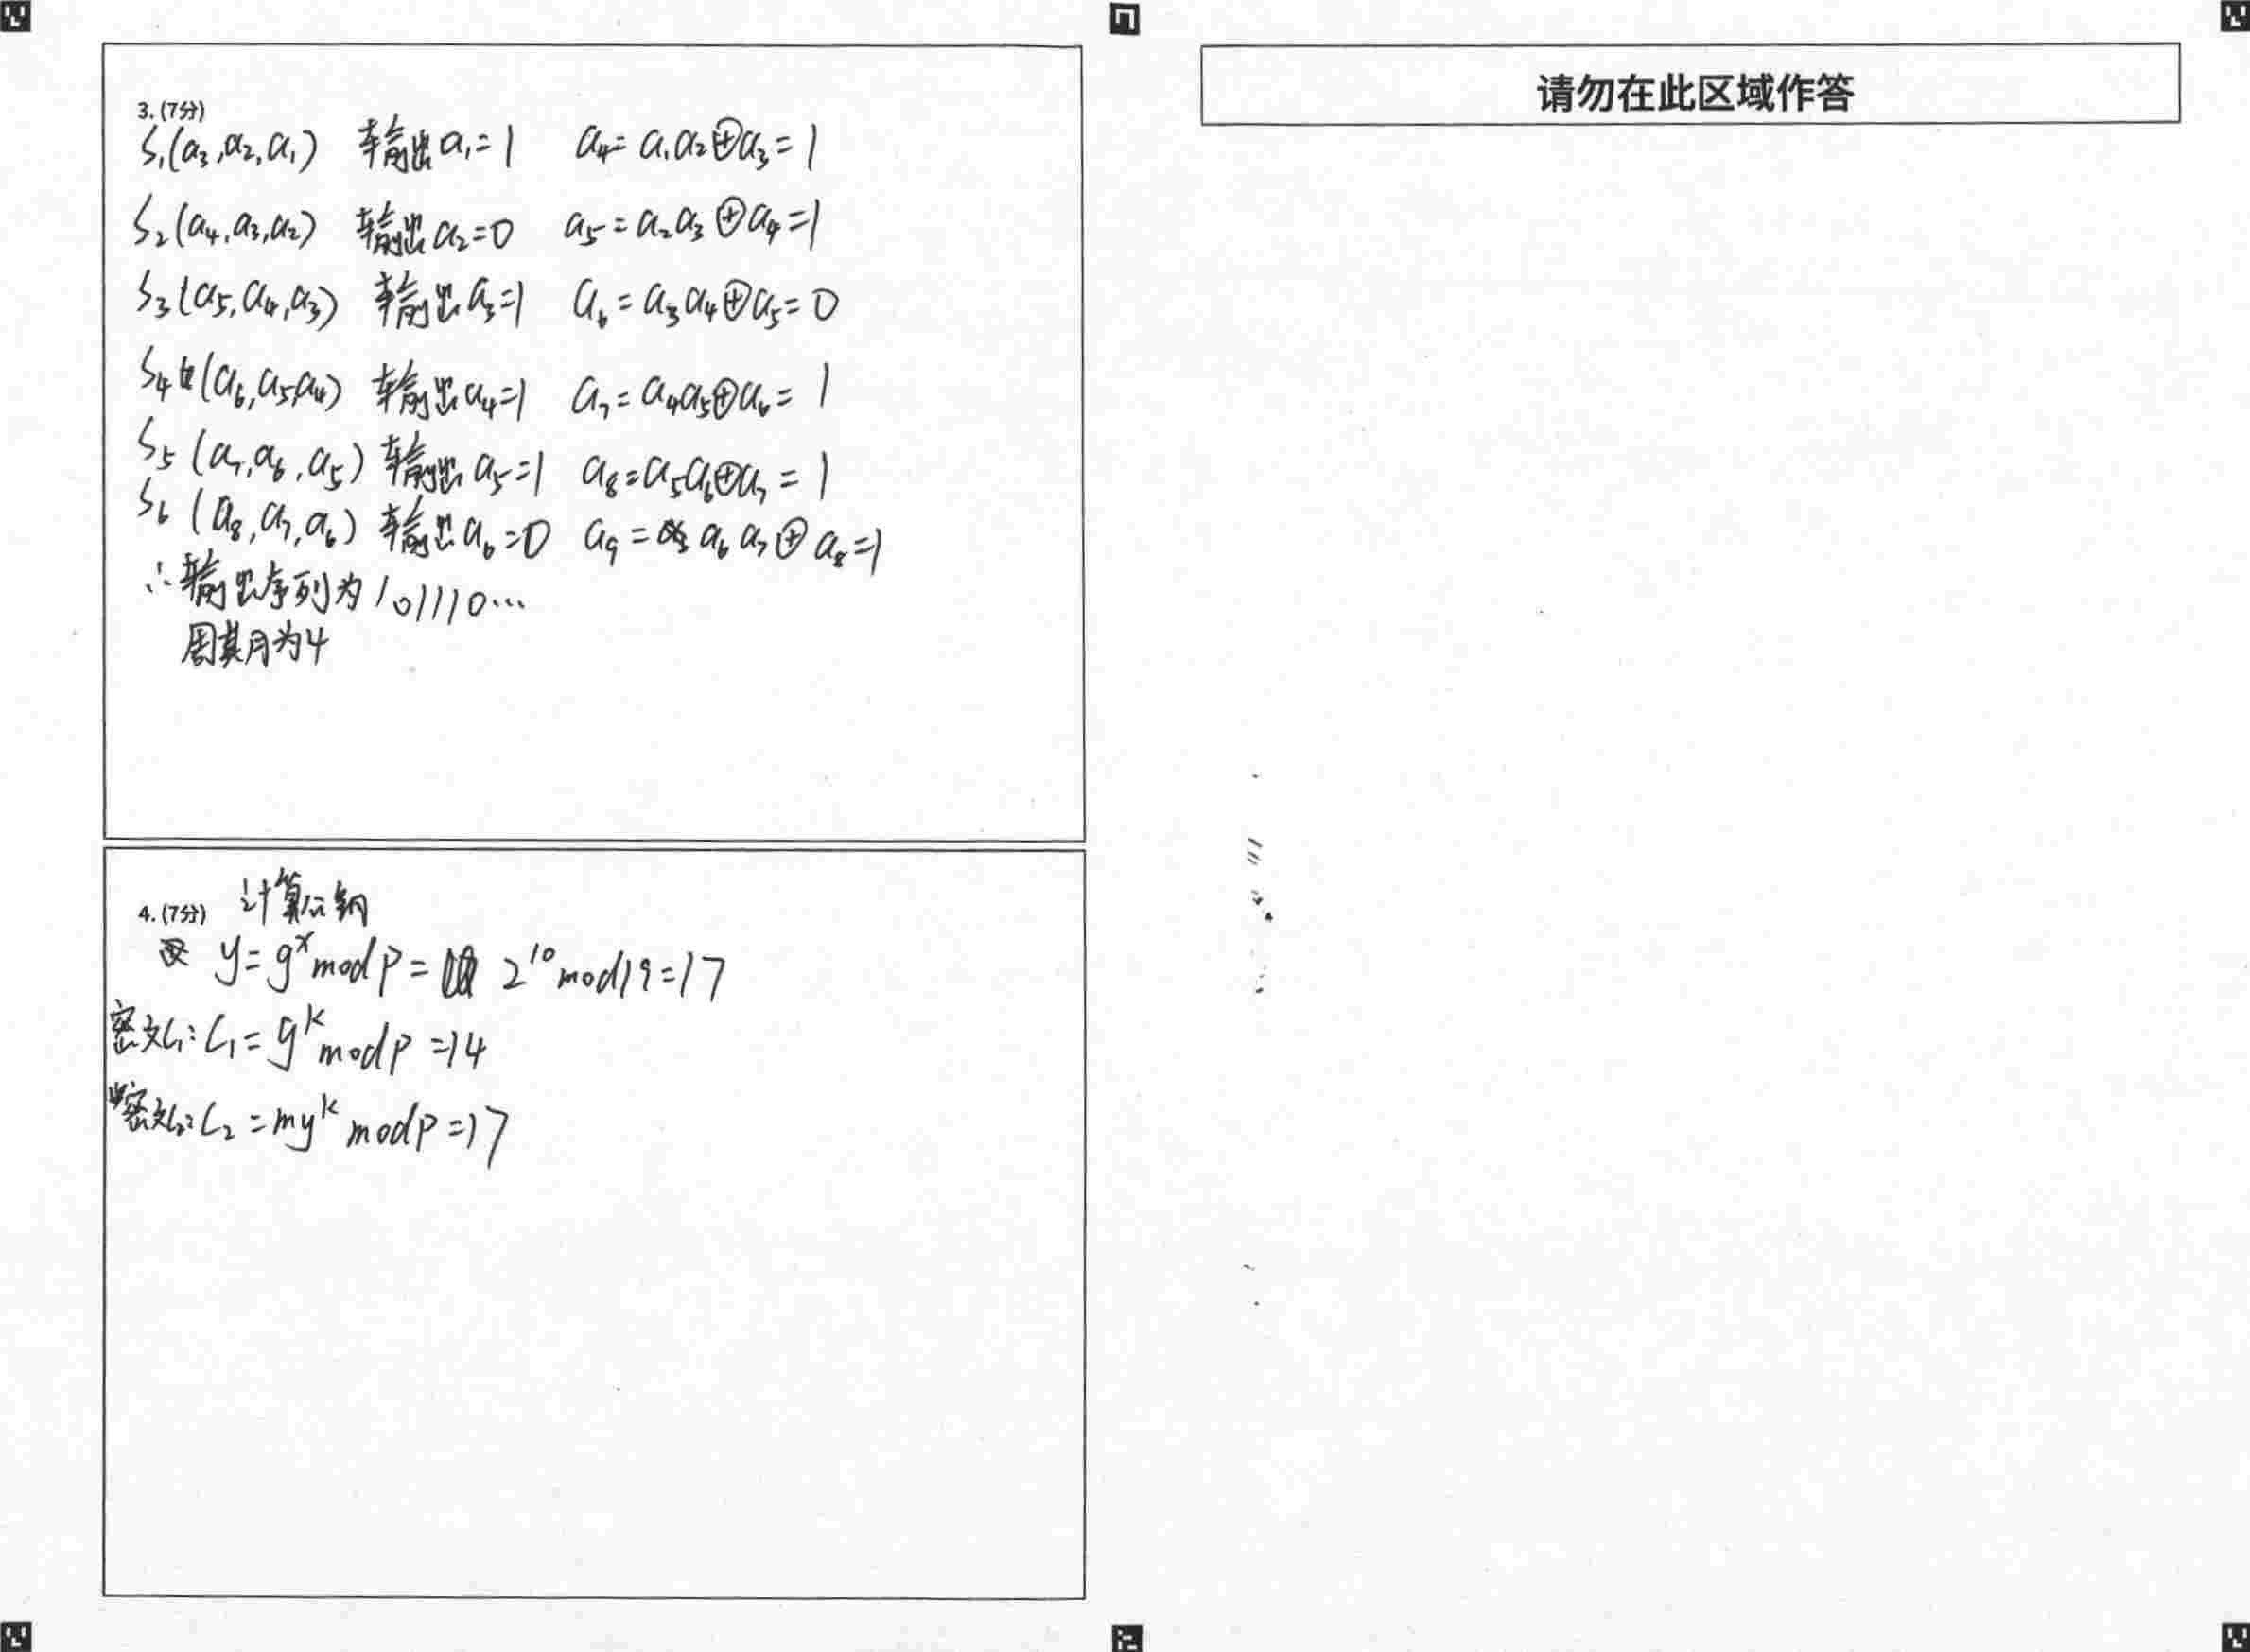 3. (7分)
S₁(a₃,a₂,a₁) 输出a₁=1 a₄=a₁a₂⊕a₃=1
S₂(a₄,a₃,a₂) 输出a₂=0 a₅=a₂a₃⊕a₄=1
S₃(a₅,a₄,a₃) 输出a₃=1 a₆=a₃a₄⊕a₅=0
S₄(a₆,a₅,a₄) 输出a₄=1 a₇=a₄a₅⊕a₆=1
S₅(a₇,a₆,a₅) 输出a₅=1 a₈=a₅a₆⊕a₇=1
S₆(a₈,a₇,a₆) 输出a₆=0 a₉=a₆a₇⊕a₈=1
∴输出序列为101110…
周期为4
4. (7分) 计算公钥
y=gˣmodp=2¹⁰mod19=17
密文C₁:C₁=gᵏmodp=14
密文C₂:C₂=myᵏmodp=17
请勿在此区域作答